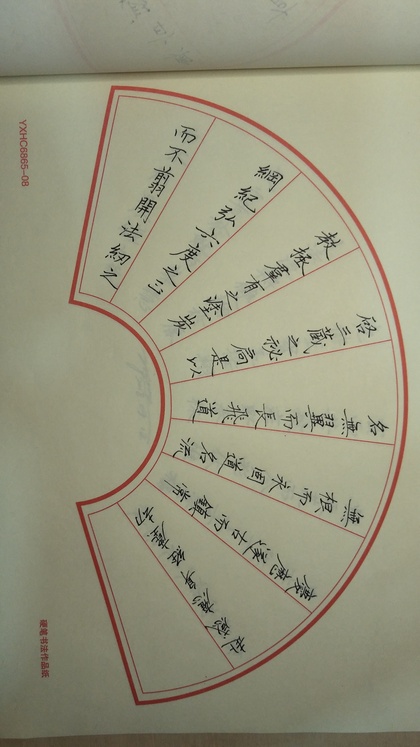 而不翦開法網之
綱紀弘六度之正
教拯羣有之塗炭
啓三藏之祕扃是以
名無翼而長飛道
無根而永固道名流
慶歷遂古而鎮常
赴感應身經塵劫
YXHC6865-08
硬笔书法作品纸